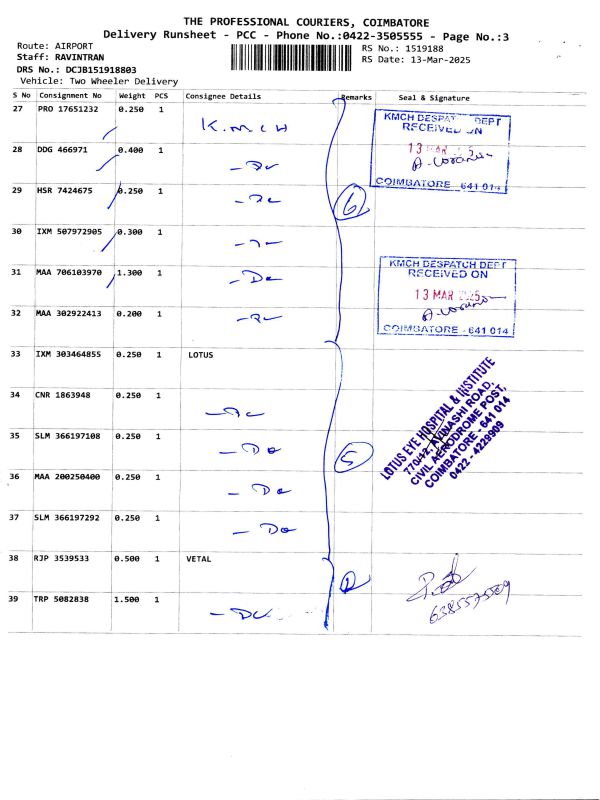 THE PROFESSIONAL COURIERS, COIMBATORE
Delivery Runsheet - PCC - Phone No.:0422-3505555 - Page No.:3
Route: AIRPORT
Staff: RAVINTRAN
DRS No.: DCJB151918803
Vehicle: Two Wheeler Delivery
RS No.: 1519188
RS Date: 13-Mar-2025
S No Consignment No Weight PCS Consignee Details Remarks Seal & Signature
27 PRO 17651232 0.250 1 K.M.C.H
28 DDG 466971 0.400 1
29 HSR 7424675 0.250 1
30 IXM 507972905 0.300 1
31 MAA 706103970 1.300 1 - Do
32 MAA 302922413 0.200 1
6
KMCH DESPATCH DEPT
RECEIVED ON
13 MAR
COIMBATORE - 641 014
KMCH DESPATCH DEPT
RECEIVED ON
13 MAR 2025
COIMBATORE - 641 014
33 IXM 303464855 0.250 1 LOTUS
34 CNR 1863948 0.250 1
35 SLM 366197108 0.250 1 - Do
36 MAA 200250400 0.250 1 - Do
37 SLM 366197292 0.250 1 - Do
5
LOTUS EYE HOSPITAL & INSTITUTE
770/12, AVINASHI ROAD,
CIVIL AERODROME POST,
COIMBATORE - 641 014
0422 - 4229909
38 RJP 3539533 0.500 1 VETAL
39 TRP 5082838 1.500 1 - Do
2